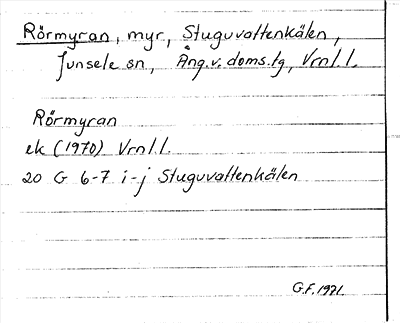 Rörmyran, myr, Stuguvattenkälen,
Junsele sn, Ång.v. doms.lg, Vrnl.l.
Rörmyran
ek (1970) Vrnl.l.
20 G 6-7 i-j Stuguvattenkälen
G.F. 1971.